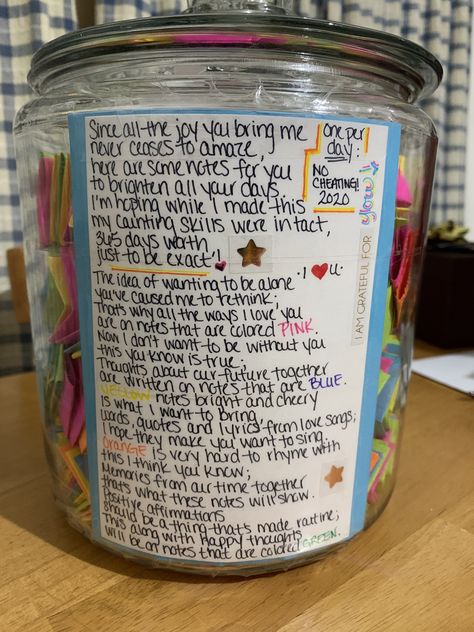 Since all the joy you bring me
never ceases to amaze,
here are some notes for you
to brighten all your days.
I'm hoping while I made this
my counting skills were in tact,
365 days worth,
just to be exact!
one per
day:
NO
CHEATING!
2020
I ♥ u.
I AM GRATEFUL FOR
you!
The idea of wanting to be alone
you've caused me to rethink;
That's why all the ways I love you
are on notes that are colored PINK.
Now I don't want to be without you
this you know is true.
Thoughts about our future together
are written on notes that are BLUE.
YELLOW notes bright and cheery
is what I want to bring
Words, quotes and lyrics from love songs;
I hope they make you want to sing.
ORANGE is very hard to rhyme with
this I think you know;
Memories from our time together
that's what these notes will show.
Positive affirmations
should be a thing that's made routine;
This along with Happy thoughts
will be on notes that are colored GREEN.